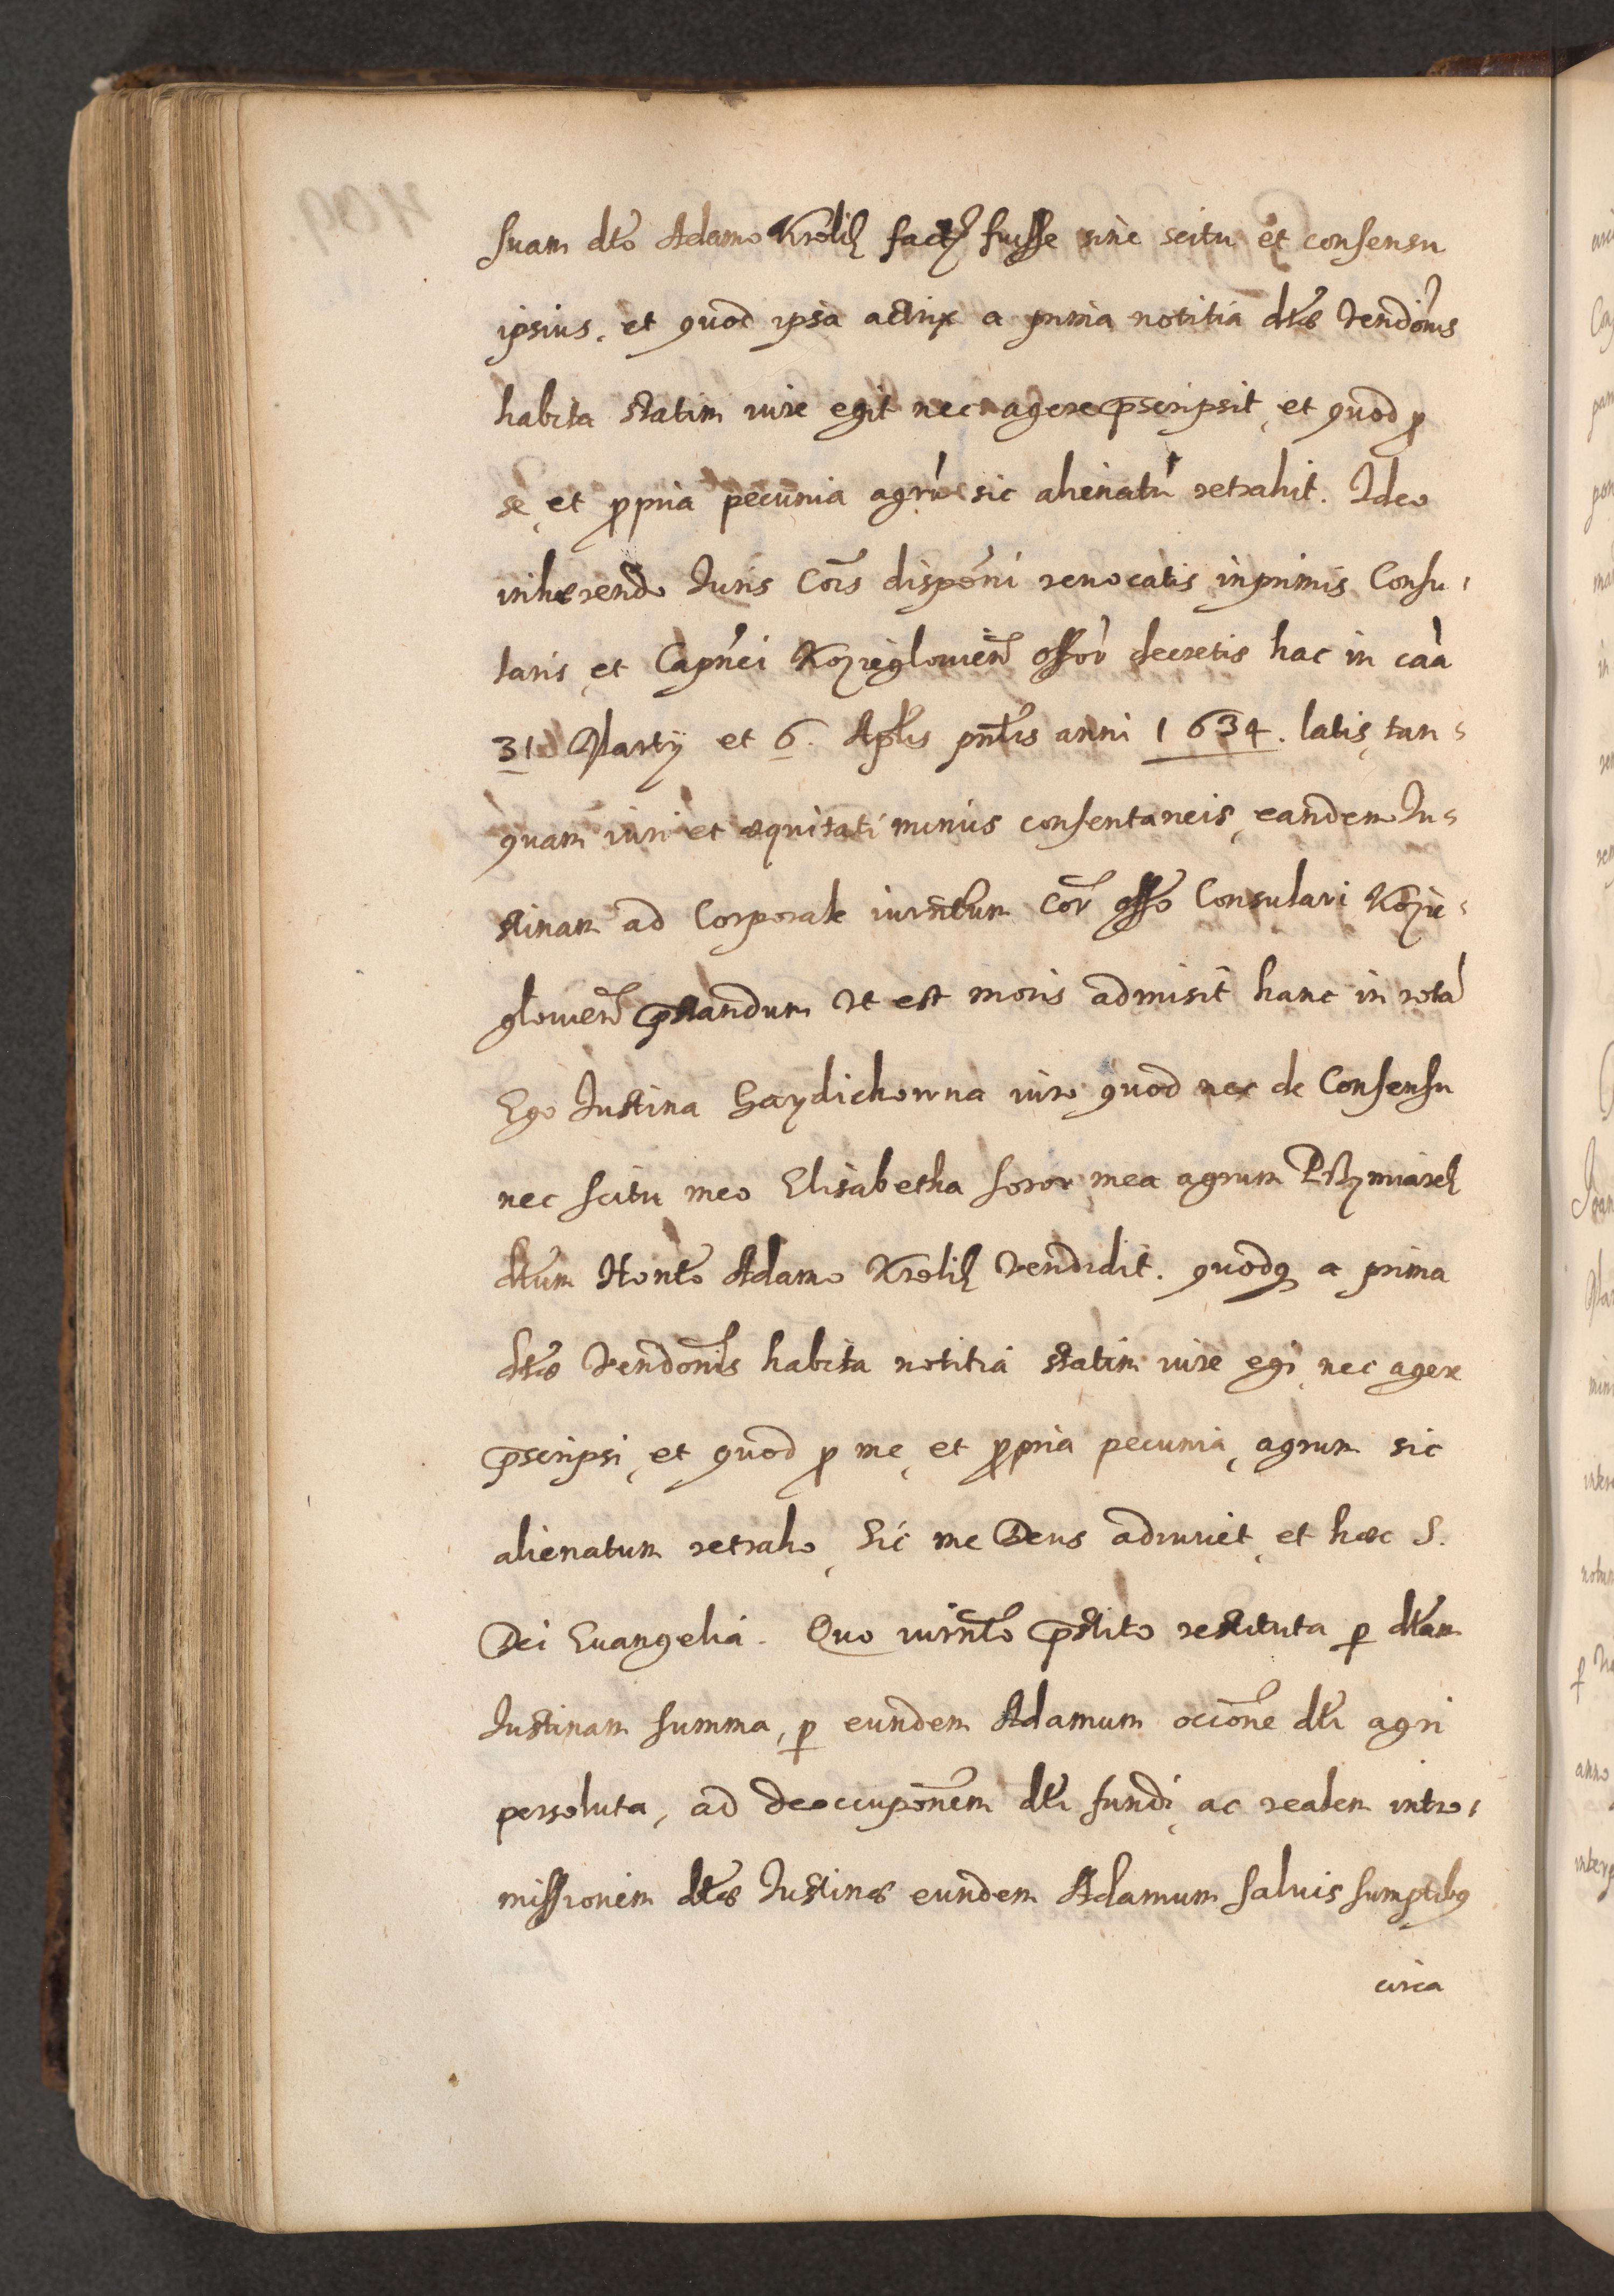 suam dto Adamo Krolik factā fuisse sine scitu et consensu
ipsius, et quod ipsa actrix a prima notitia dtæ vendōnis
habita statim iure egit nec agere pscripsit, et quod p
se, et ppria pecunia agrū sic alienatū retrahit. Ideo
inhærendo Iuris Cōis dispōni reuocatis inprimis Consu-
laris, et Capnei Kozieglouien offōr decretis hac in caā
31 Marty et 6. Aplis pntis anni 1634. latis, tan-
quam iuri et æquitati minus consentaneis, eandem Iu-
stinam ad Corporale iurntum Cor offo Consulari Kozie-
glouien pstandum vt est moris admisit hanc in rotā
Ego Iustina Gaydichowna iuro quod nec de Consensu
nec scitu meo Elisabetha soror mea agrum Przymiarek
dtum Honto Adamo Krolik vendidit. quodq a prima
dtæ vendonis habita notitia statim iure egi, nec agere
pscripsi, et quod p me, et ppria pecunia, agrum sic
alienatum retraho, Sic me Deus adiuuet, et hæc S.
Dei Euangelia. Quo iurnto pstito restituta p dtam
Iustinam summa, p eundem Adamum occione dti agri
persoluta, ad deoccuponem dti fundi, ac realem intro-
missionem dtæ Iustinæ eundem Adamum saluis sumptibq
circa